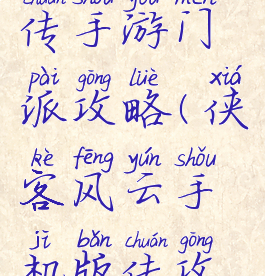 chuán shǒu yóu mén
传手游门
pài gōng lüè xiá
派攻略(侠
kè fēng yún shǒu
客风云手
jī bǎn chuán gōng
机版传攻